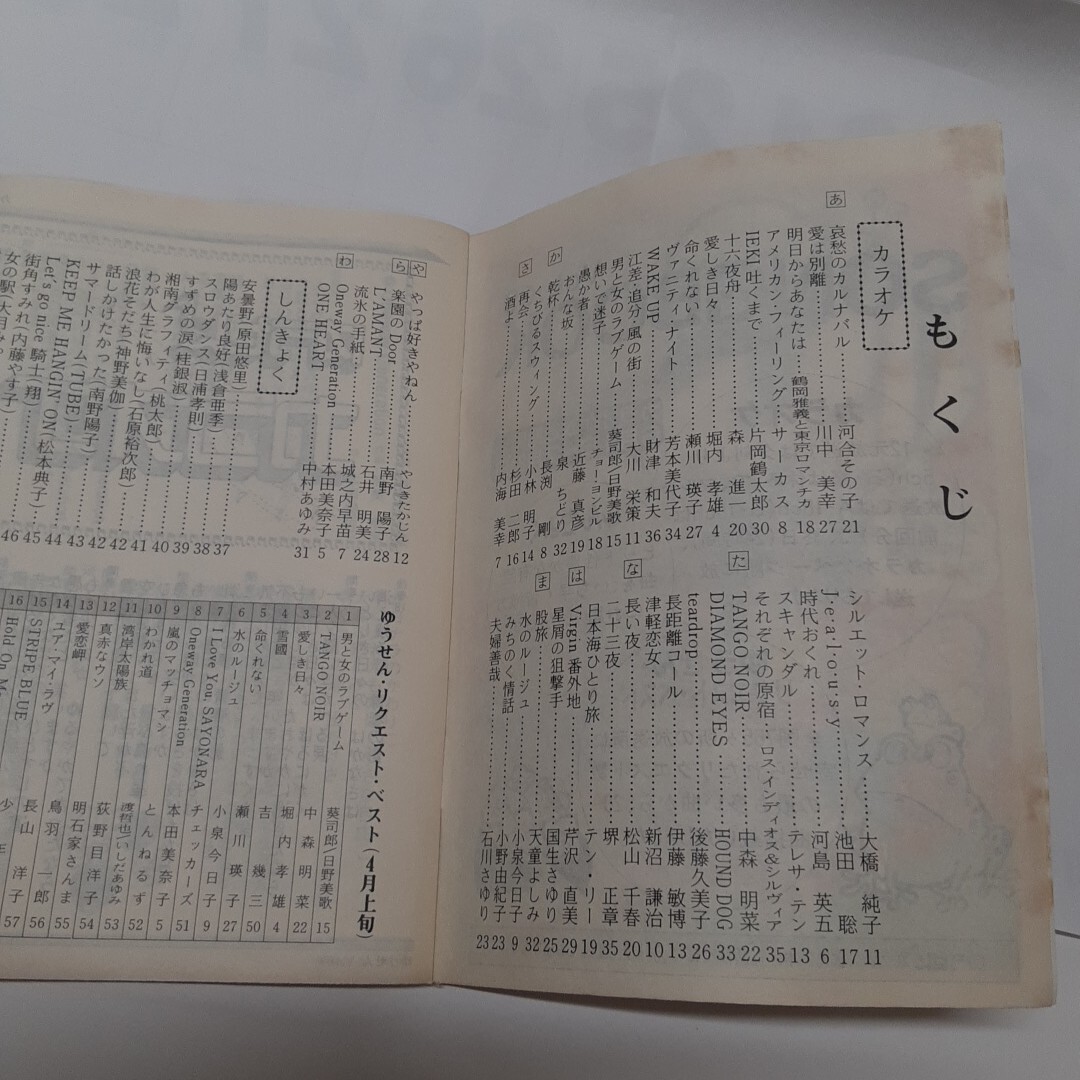 もくじ
カラオケ
あ
哀愁のカルナバル……河合その子 21
愛は別離……川中 美幸 27
明日からあなたは……鶴岡雅義と東京ロマンチカ 18
アメリカン・フィーリング……サーカス 8
IEKI吐くまで……片岡鶴太郎 30
十六夜舟……森 進一 20
愛しき日々……堀内 孝雄 4
命くれない……瀬川 瑛子 27
ヴァニティ・ナイト……芳本美代子 34
WAKE UP……財津 和夫 36
江差・追分 風の街……大川 栄策 11
男と女のラブゲーム……葵司郎/日野美歌 15
想いで迷子……チョー・ヨンピル 18
愚か者……近藤 真彦 19
おんな坂……泉 ちどり 32
か
乾杯……長渕 剛 8
くちびるスウィング……小林 明子 14
さ
再会……杉田 二郎 16
酒よ……内海 美幸 7
シルエット・ロマンス……大橋 純子 11
J・e・a・l・o・u・s・y……池田 聡 17
時代おくれ……河島 英五 6
スキャンダル……テレサ・テン 13
それぞれの原宿……ロス・インディオス&シルヴィア 35
た
TANGO NOIR……中森 明菜 22
DIAMOND EYES……HOUND DOG 33
teardrop……後藤久美子 26
長距離コール……伊藤 敏博 13
津軽恋女……新沼 謙治 10
な
長い夜……松山 千春 20
二十三夜……堺 正章 35
日本海ひとり旅……テン・リー 19
は
Virgin 番外地……芹沢 直美 29
星屑の狙撃手……国生さゆり 25
ま
股旅……天童よしみ 32
水のルージュ……小泉今日子 9
みちのく情話……小野由紀子 23
夫婦善哉……石川さゆり 23
や
やっぱ好きやねん……やしきたかじん 12
ら
楽園のDoor……南野 陽子 28
L'AMANT……石井 明美 24
流氷の手紙……城之内早苗 7
わ
Oneway Generation……本田美奈子 5
ONE HEART……中村あゆみ 31
しんきょく
安曇野(原田悠里)……37
陽あたり良好(浅倉亜季)……38
スロウダンス(日浦孝則)……39
すずめの涙(桂銀淑)……40
湘南グラフィティ(桃太郎)……41
わが人生に悔いなし(石原裕次郎)……42
浪花そだち(神野美伽)……42
話しかけたかった(南野陽子)……43
サマードリーム(TUBE)……44
KEEP ME HANGIN' ON(松本典子)……45
Let's go nice 騎士(翔)……46
街角すみれ(内藤やす子)
女の駅(大月み
ゆうせん・リクエスト・ベスト(4月上旬)
1 男と女のラブゲーム 葵司郎/日野美歌 15
2 TANGO NOIR 中森明菜 22
3 愛しき日々 堀内孝雄 4
4 雪國 吉幾三 50
5 命くれない 瀬川瑛子 27
6 水のルージュ 小泉今日子 9
7 I Love You, SAYONARA チェッカーズ 51
8 Oneway Generation 本田美奈子 5
9 嵐のマッチョマン とんねるず 52
10 わかれ道
11 湾岸太陽族 渡哲也/いしだあゆみ 53
12 真赤なウソ 荻野目洋子 54
13 愛恋岬 明石家さんま 55
14 ユア・マイ・ラヴ 鳥羽一郎 56
15 STRIPE BLUE 長山洋子 57
16 Hold On M 少年